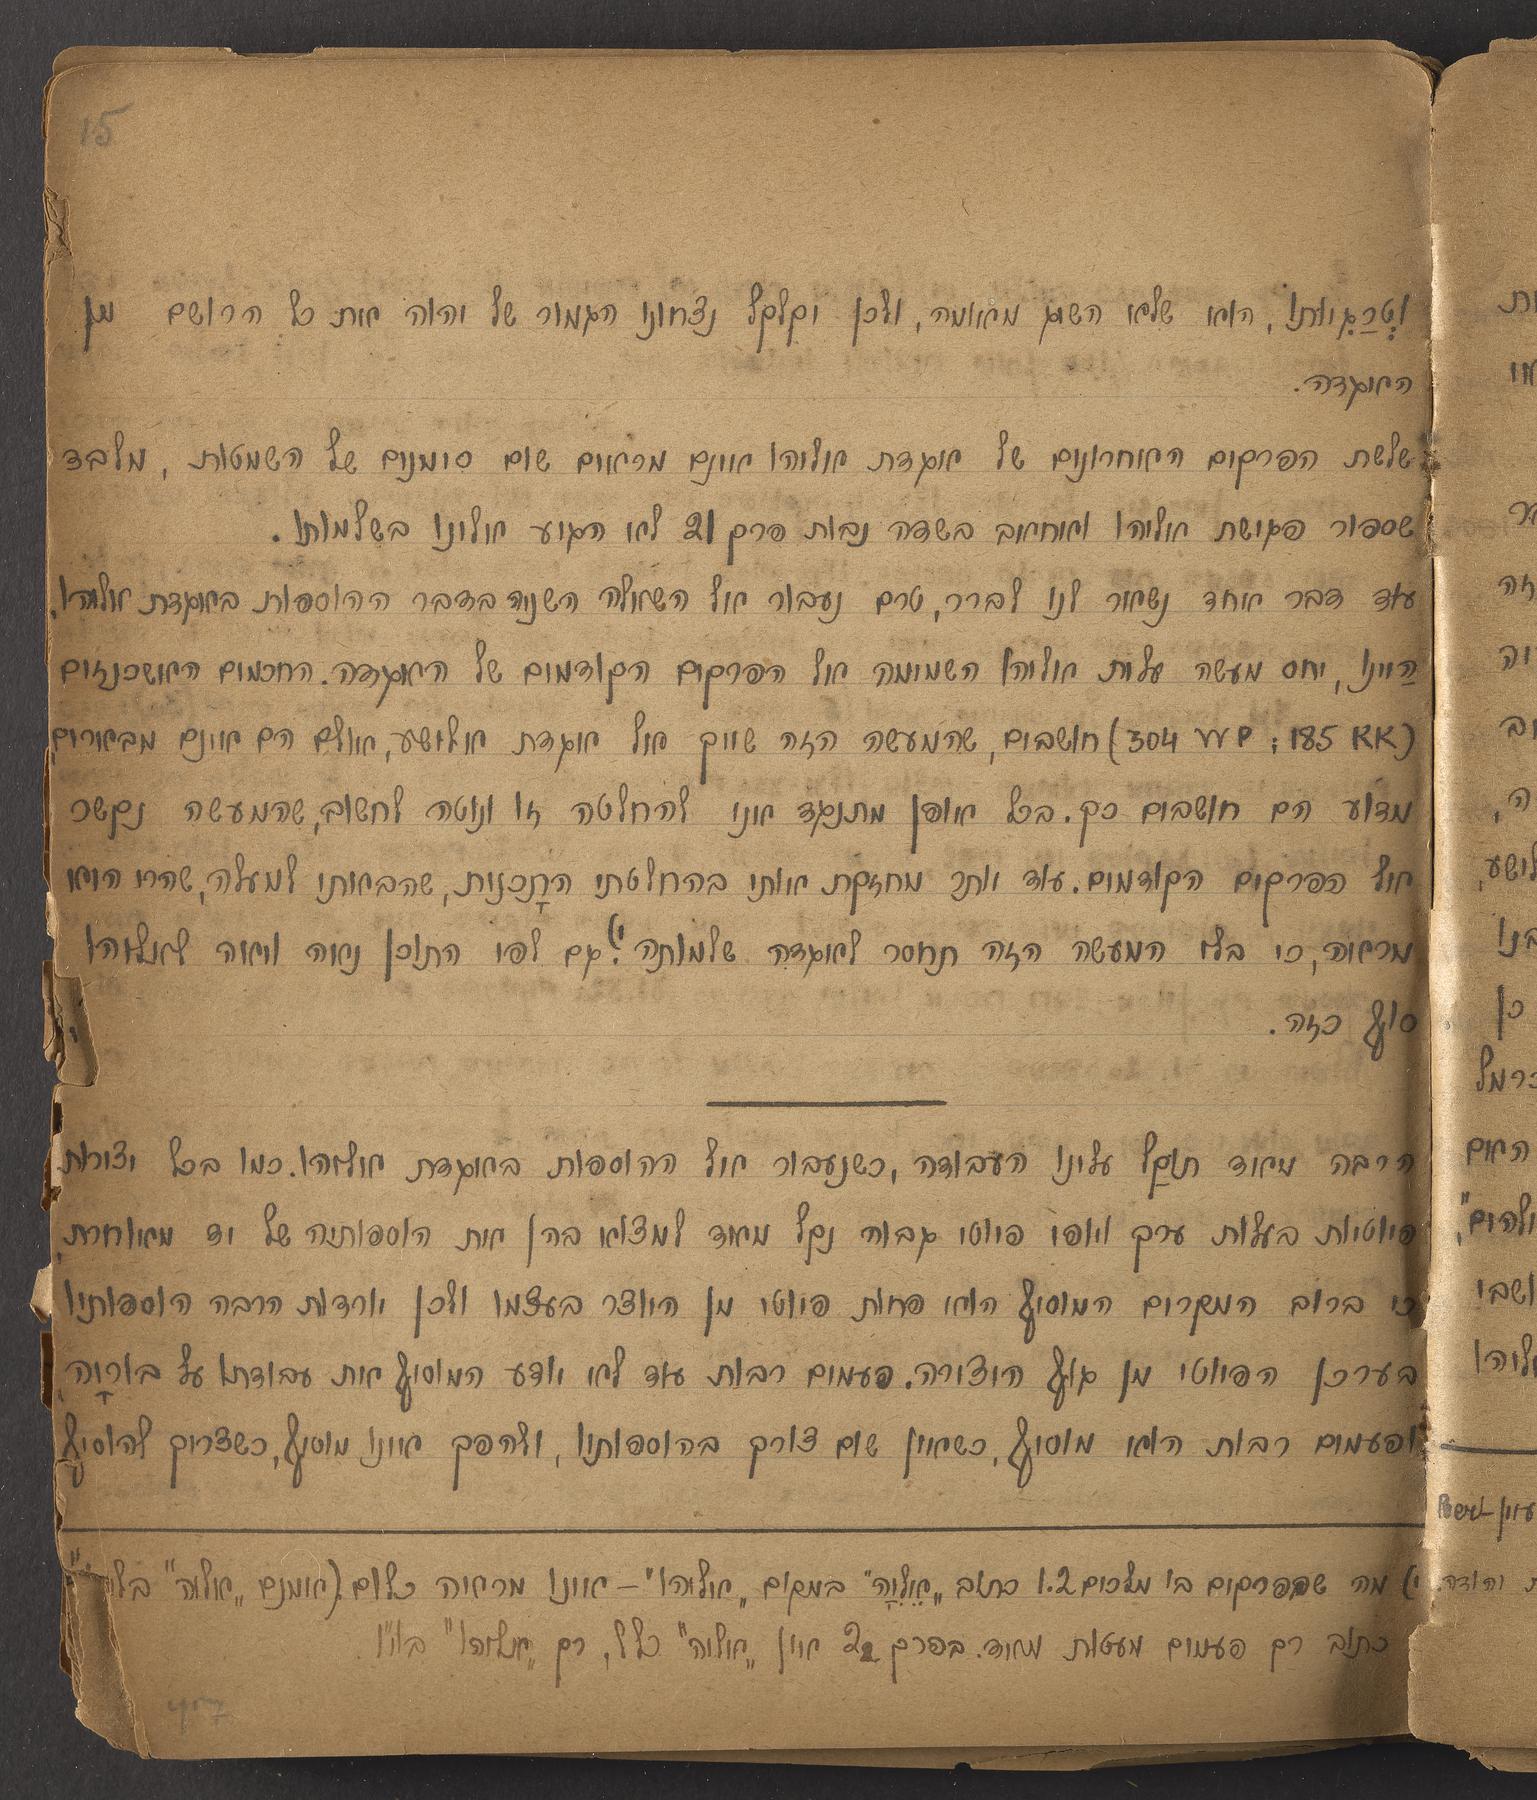 15
וְטְרַגִיותו, הוא שלא השיג מאומה, ולכן יקלקל נצחונו הגמור של יהוה את כל הרושם מן
האגדה.
שלשת הפרקים האחרונים של אגדת אליהו אינם מראים שום סימנים של השמטות, מלבד
שספור פגישת אליהו ואחאב בשדה נבות פרק 21 לא הגיע אלינו בשלמותו.
עוד דבר אחד נשאר לנו לברר, טרם נעבור אל השאלה השניה בדבר ההוספות באגדת אליהו,
הַיינו, יחס מעשה עלית אליהו השמימה אל הפרקים הקודמים של האגדה. החכמים האשכנזים
(RK 185; WP 304) חושבים, שהמעשה הזה שייך אל אגדת אלישע, אולם הם אינם מבארים,
מדוע הם חושבים כך. בכל אופן מתנגד אני להחלטה זו ונוטה לחשוב, שהמעשה נקשר
אל הפרקים הקודמים. עוד יותר מחזקת אותי בהחלטתי התָכנית, שהבאותי למעלה, שהרי היא
מראה, כי בלי המעשה הזה תחסר לאגדה שלמותה.¹) גם לפי התוכן נאה ויאה לאליהו
סוף כזה.
הרבה מאד תוקַל עלינו העבודה, כשנעבור אל ההוספות באגדת אליהו. כמו בכל יצירות
פיוטיות בעלות ערך ויופי פיוטי גבוה נקל מאד למצוא בהן את הוספותיה של יד מאוחרת,
כי ברוב המקרים המוסיף הוא פחות פיוטי מן היוצר בעצמו ולכן יורדות הרבה הוספותיו
בערכן הפיוטי מן גוף היצירה. פעמים רבות עוד לא יודע המוסיף את עבודתו על בוריָה,
ופעמים רבות הוא מוסיף, כשאין שום צורך בהוספותיו, ולהפך אינו מוסיף, כשצריך להוסיף
¹) מה שבפרקים בי מלכים 1.2 כתוב „אֵלִיָה" במקום „אליהו" – אינו מראה כלום. (אומנם „אליה" בלי
כתוב רק פעמים מעטות מאד. בפרק 22 אין „אליה" כלל, רק „אליהו" בוי"ו